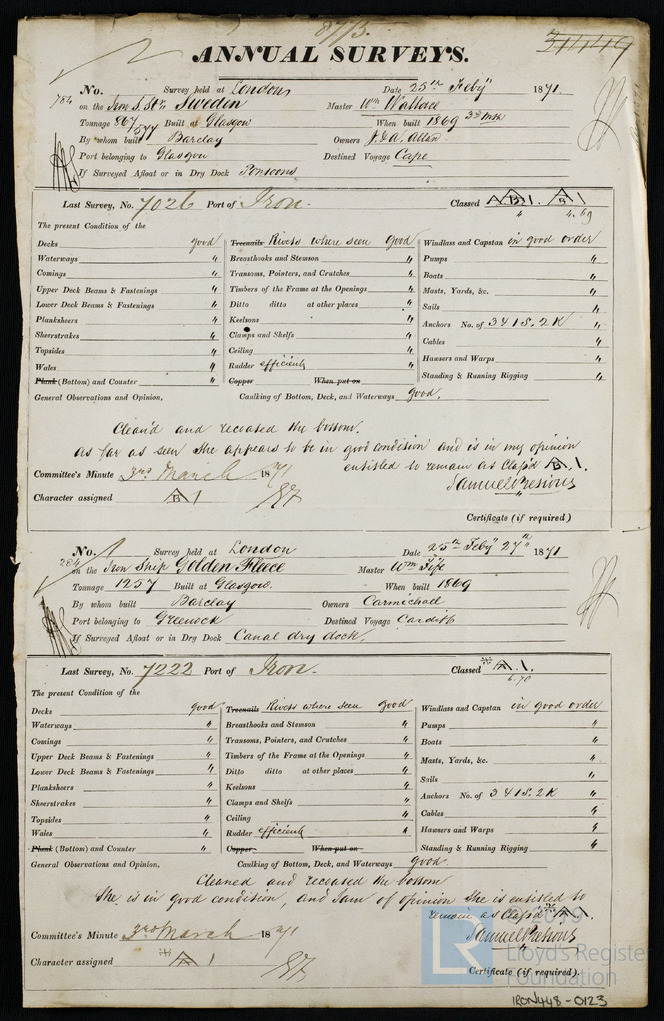 8775.
ANNUAL SURVEYS.
No. Survey held at London Date 25th Feby 1871.
784 on the Iron S. Str. Sweden Master Wm Wallace
Tonnage 867/577 Built at Glasgow When built 1869 3rd Mth
By whom built Barclay Owners J. & A. Allan
Port belonging to Glasgow Destined Voyage Cape
If Surveyed Afloat or in Dry Dock Ponsons
Last Survey, No. 7026 Port of Iron. Classed A B 1. A B 1
4 4.69
The present Condition of the
Decks good Treenails Rivets where seen good Windlass and Capstan in good order
Waterways " Breasthooks and Stemson " Pumps "
Comings " Transoms, Pointers, and Crutches " Boats "
Upper Deck Beams & Fastenings " Timbers of the Frame at the Openings " Masts, Yards, &c. "
Lower Deck Beams & Fastenings " Ditto ditto at other places " Sails "
Planksheers " Keelsons " Anchors No. of 3 4 1 S. 2 K "
Sheerstrakes " Clamps and Shelfs " Cables "
Topsides " Ceiling " Hawsers and Warps "
Wales " Rudder efficient " Standing & Running Rigging "
Plank (Bottom) and Counter " Copper When put on
General Observations and Opinion, Caulking of Bottom, Deck, and Waterways good.
Clean'd and recoated the bottom.
As far as seen she appears to be in good condition and is in my opinion
entitled to remain as Class'd A B .1.
Committee's Minute 3rd March 1871
Samuel Presious
Character assigned A B 1
Certificate (if required)
No. Survey held at London Date 25th Feby 27th 1871
284 on the Iron Ship Golden Fleece Master Wm Fife
Tonnage 1257 Built at Glasgow. When built 1869
By whom built Barclay Owners Carmichael
Port belonging to Greenock Destined Voyage Cardiff
If Surveyed Afloat or in Dry Dock Canal dry dock.
Last Survey, No. 7222 Port of Iron. Classed A .1.
6.70
The present Condition of the
Decks good Treenails Rivets where seen good Windlass and Capstan in good order
Waterways " Breasthooks and Stemson " Pumps "
Comings " Transoms, Pointers, and Crutches " Boats "
Upper Deck Beams & Fastenings " Timbers of the Frame at the Openings " Masts, Yards, &c. "
Lower Deck Beams & Fastenings " Ditto ditto at other places " Sails "
Planksheers " Keelsons " Anchors No. of 3 4 1 S. 2 K "
Sheerstrakes " Clamps and Shelfs " Cables "
Topsides " Ceiling " Hawsers and Warps "
Wales " Rudder efficient " Standing & Running Rigging "
Plank (Bottom) and Counter " Copper When put on
General Observations and Opinion, Caulking of Bottom, Deck, and Waterways good
Cleaned and recoated the bottom
She is in good condition, and I am of opinion she is entitled to
remain as Class'd A 1.
Committee's Minute 3rd March 1871
Samuel Presious
Character assigned A 1
Certificate (if required).
LR 2019
Lloyd's Register
Foundation
IRON448-0123